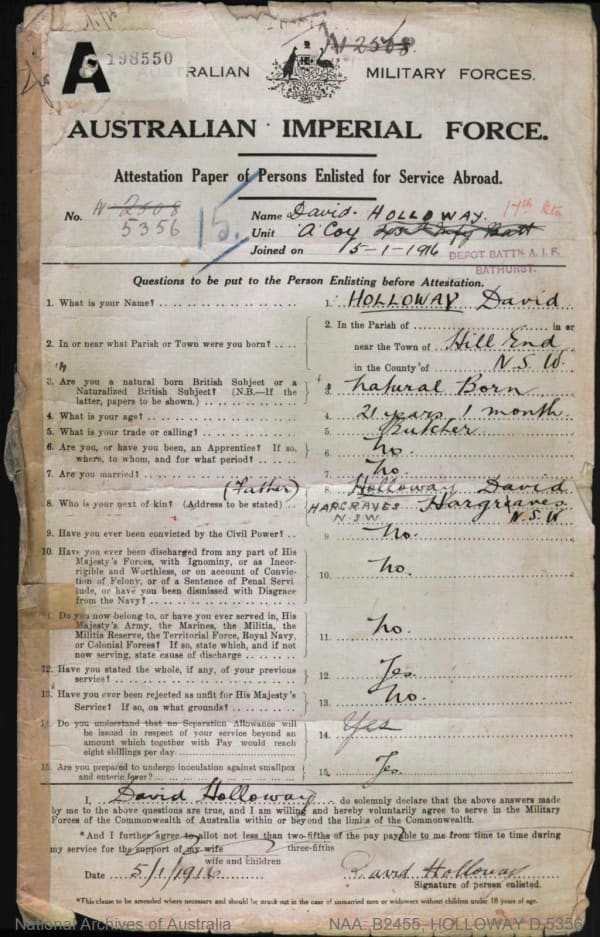 N 2508.
A 198550
AUSTRALIAN MILITARY FORCES.
AUSTRALIAN IMPERIAL FORCE.
Attestation Paper of Persons Enlisted for Service Abroad.
No. N 2508
5356
15.
Name David HOLLOWAY. 17th Btn
Unit 'A' Coy Batt
Joined on 5-1-1916
DEPOT BATTN. A.I.F.
BATHURST.
Questions to be put to the Person Enlisting before Attestation.
1. What is your Name? 1. HOLLOWAY David
2. In or near what Parish or Town were you born? 2. In the Parish of in or
near the Town of Hill End
in the County of N.S.W.
3. Are you a natural born British Subject or a
Naturalized British Subject? (N.B.—If the
latter, papers to be shown.) 3. Natural Born
4. What is your age? 4. 21 years 1 month
5. What is your trade or calling? 5. Butcher
6. Are you, or have you been, an Apprentice? If so,
where, to whom, and for what period? 6. No.
7. Are you married? 7. No.
(Father) 8. Holloway David
8. Who is your next of kin? (Address to be stated) HARGRAVES Hargreaves
N.S.W. N.S.W
9. Have you ever been convicted by the Civil Power? 9. No.
10. Have you ever been discharged from any part of His
Majesty's Forces, with Ignominy, or as Incor-
rigible and Worthless, or on account of Convic-
tion of Felony, or of a Sentence of Penal Servi
tude, or have you been dismissed with Disgrace
from the Navy? 10. No.
Do you now belong to, or have you ever served in, His
Majesty's Army, the Marines, the Militia, the
Militia Reserve, the Territorial Force, Royal Navy,
or Colonial Forces? If so, state which, and if not
now serving, state cause of discharge 11. No.
12. Have you stated the whole, if any, of your previous
service? 12. Yes
13. Have you ever been rejected as unfit for His Majesty's
Service? If so, on what grounds? 13. No.
14. Do you understand that no Separation Allowance will
be issued in respect of your service beyond an
amount which together with Pay would reach
eight shillings per day 14. Yes
15. Are you prepared to undergo inoculation against smallpox
and enteric fever? 15. Yes
I, David Holloway do solemnly declare that the above answers made
by me to the above questions are true, and I am willing and hereby voluntarily agree to serve in the Military
Forces of the Commonwealth of Australia within or beyond the limits of the Commonwealth.
*And I further agree to allot not less than two-fifths of the pay payable to me from time to time during
three-fifths
my service for the support of my wife
wife and children
Date 5/1/1916 David Holloway
Signature of person enlisted.
*This clause to be amended where necessary and should be struck out in the case of unmarried men or widowers without children under 18 years of age.
National Archives of Australia NAA: B2455, HOLLOWAY D 5356